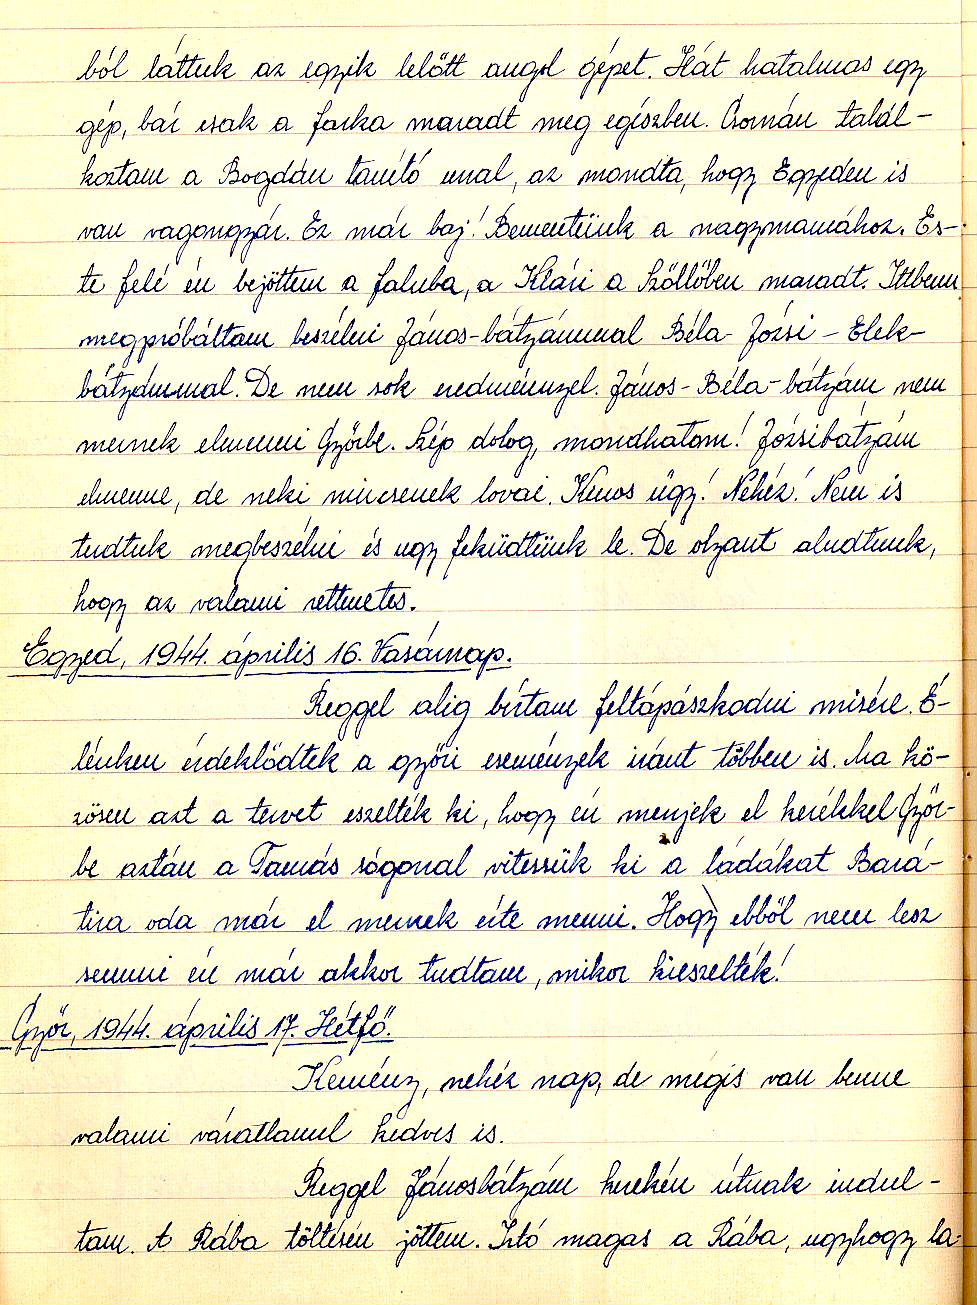 ból láttuk az egyik lelőtt angol gépet. Hát hatalmas egy
gép, bár csak a farka maradt meg egészben. Csornán talál-
koztam a Bogdán tanító unal, az mondta, hogy Egyeden is
van vagongyár. Ez már baj! Bementünk a nagymamához. Es-
te felé én bejöttem a faluba, a Klári a Szőllőben maradt. Ittbenn
megpróbáltam beszélni János-bátyámmal Béla- Józsi - Elek-
bátyámmal. De nem sok eredménnyel. János- Béla-bátyám nem
mernek elmenni Győrbe. Szép dolog, mondhatom! Józsibátyám
elmenne, de neki nincsenek lovai. Kínos ügy! Nehéz! Nem is
tudtuk megbeszélni és ugy feküdtünk le. De olyant aludtunk,
hogy az valami rettenetes.
Egyed, 1944. április 16. Vasárnap.
Reggel alig bírtam feltápászkodni misére. É-
lénken érdeklődtek a győri események iránt többen is. Ma kö-
zösen azt a tervet eszelték ki, hogy én menjek el kerékkel Győr-
be aztán a Tamás sógorral vitessük ki a ládákat Bará-
tira oda már el mernek érte menni. Hogy ebből nem lesz
semmi én már akkor tudtam, mikor kieszelték!
Győr, 1944. április 17. Hétfő.
Kemény, nehéz nap, de mégis van benne
valami váratlanul kedves is.
Reggel Jánosbátyám kerekén útnak indul-
tam. A Rába töltésén jöttem. Irtó magas a Rába, ugyhogy la-